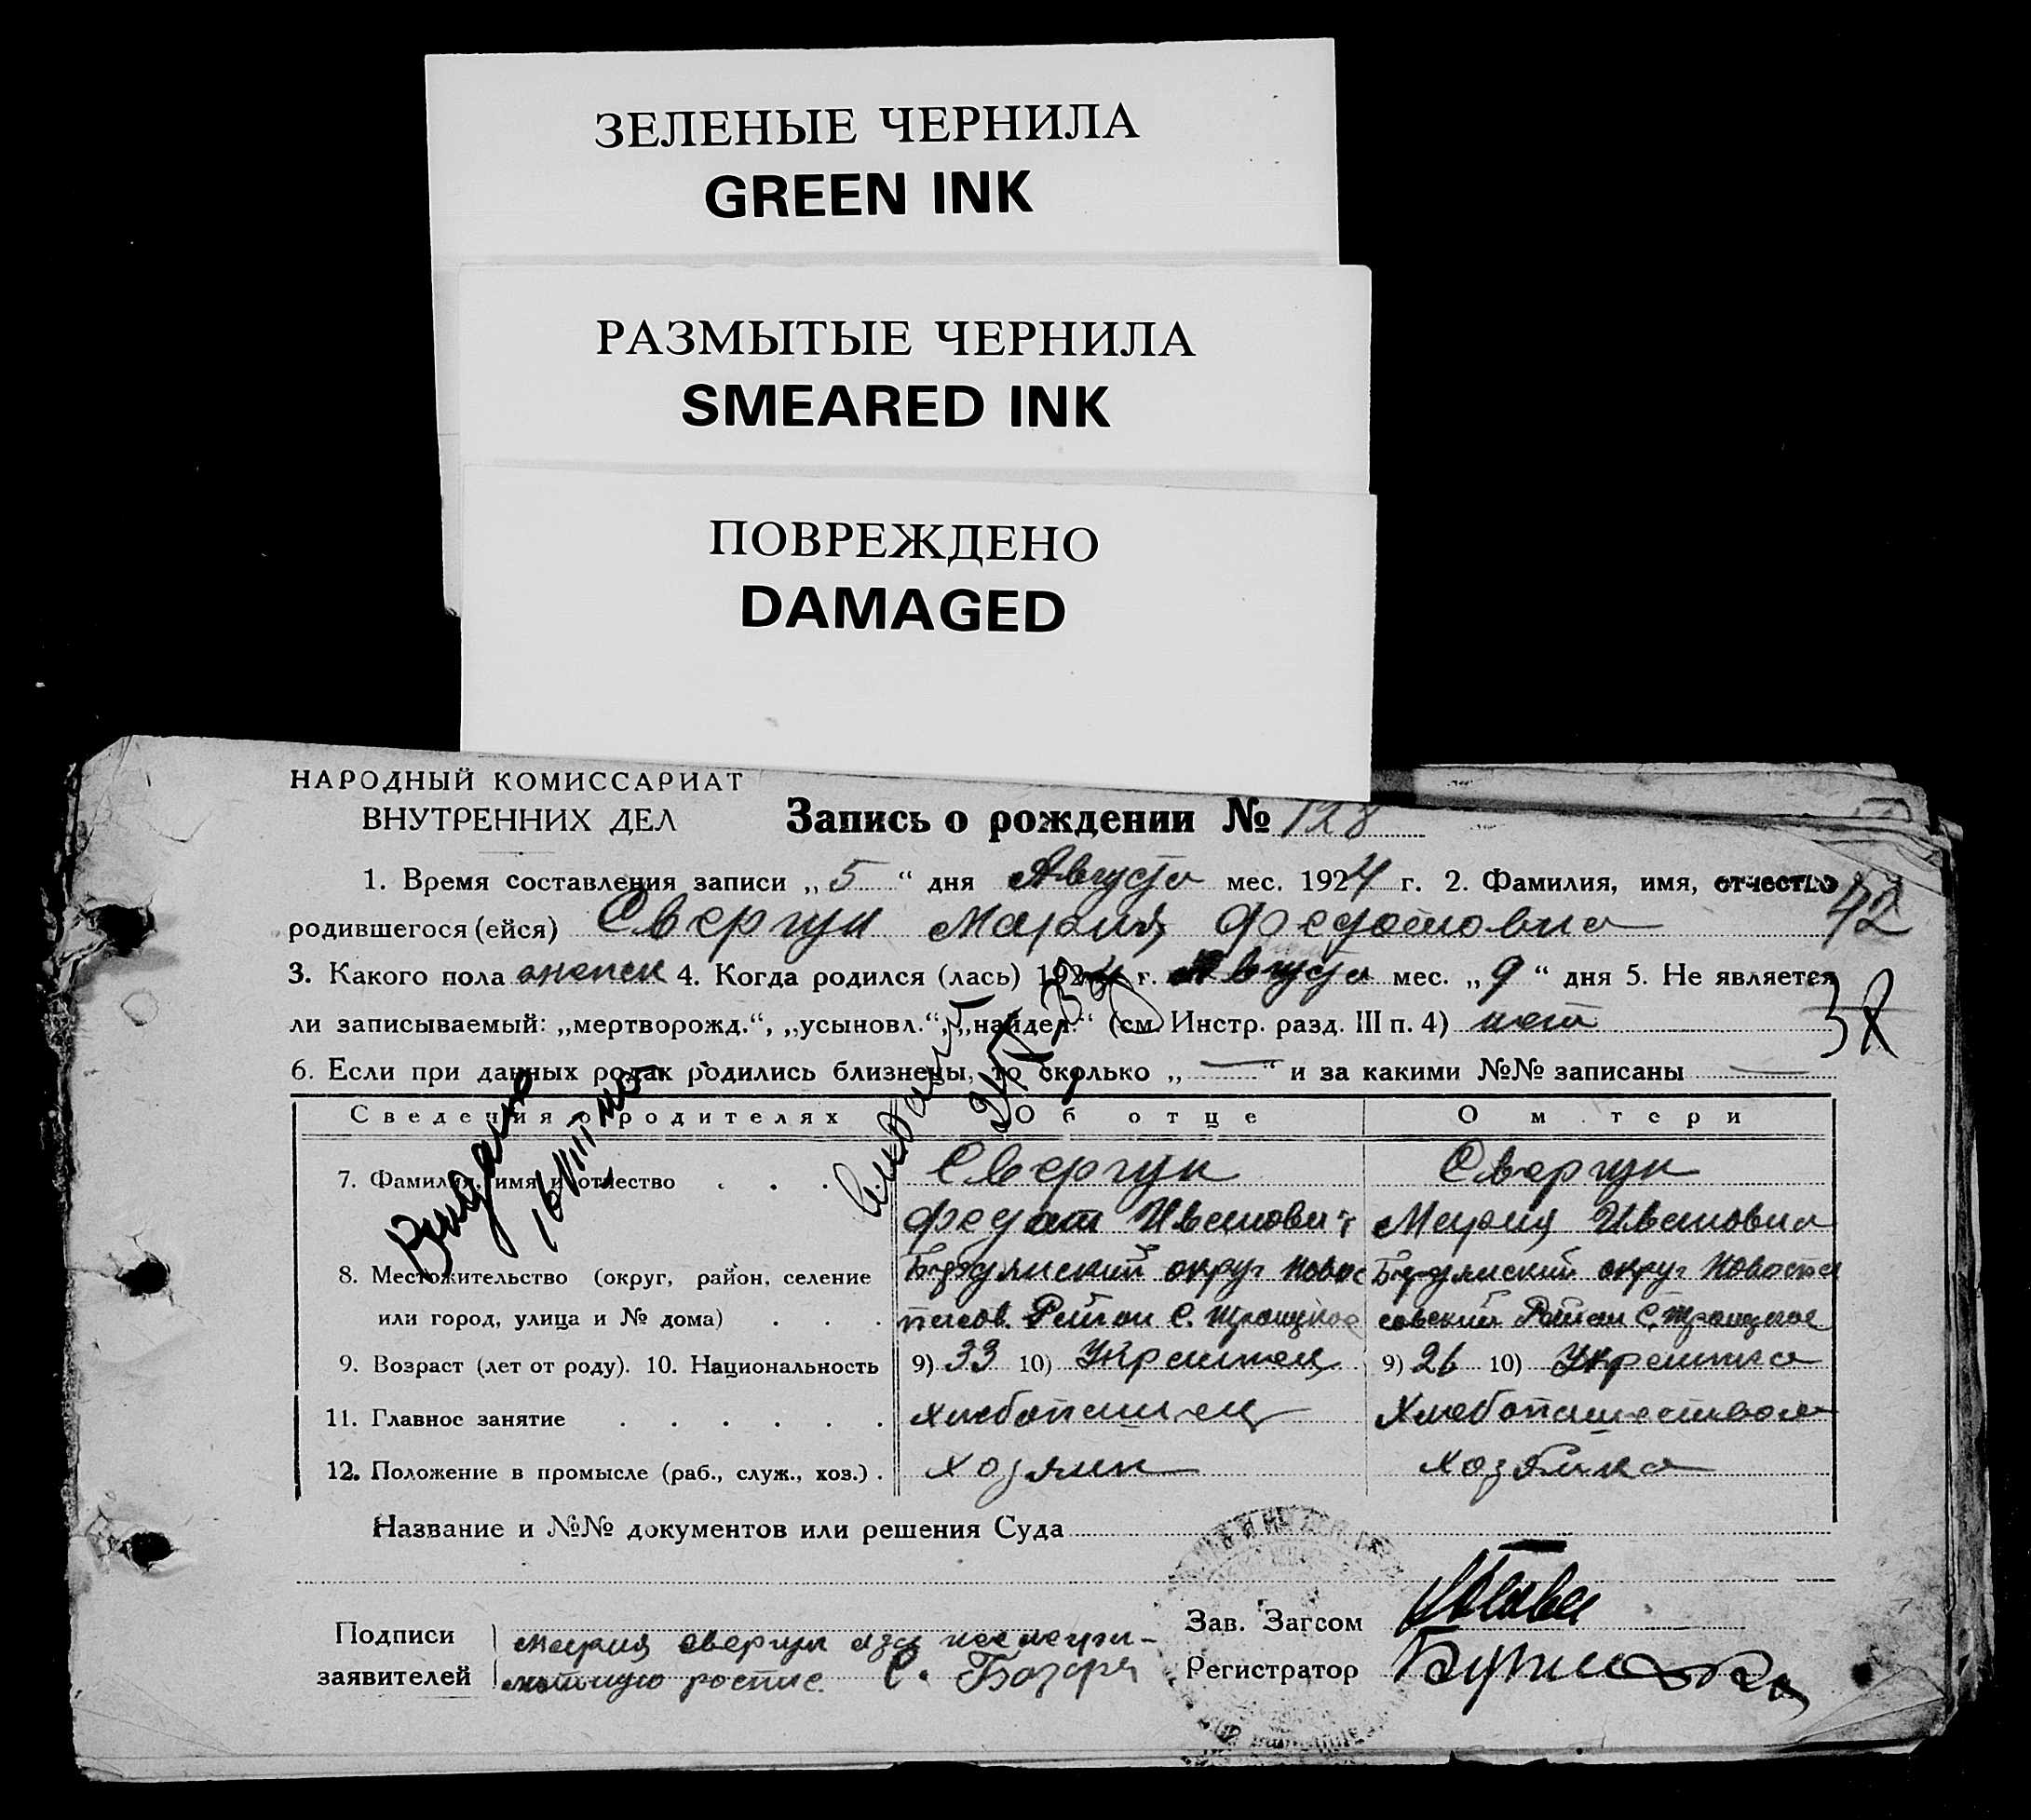 ЗЕЛЕНЫЕ ЧЕРНИЛА
GREEN INK
РАЗМЫТЫЕ ЧЕРНИЛА
SMEARED INK
ПОВРЕЖДЕНО
DAMAGED
НАРОДНЫЙ КОМИССАРИАТ
ВНУТРЕННИХ ДЕЛ
Запись о рождении № 128
1. Время составления записи „ 5 “ дня Августа мес. 1924 г. 2. Фамилия, имя, отчество
42
родившегося (ейся) Свергун Мария Федотовна
3. Какого пола женск 4. Когда родился (лась) 1924 г. Августа мес. „ 9 “ дня 5. Не является
ли записываемый: „мертворожд.“, „усыновл.“, „найден.“ (см. Инстр. разд. III п. 4) нет
38
6. Если при данных родах родились близнецы, то сколько „ — “ и за какими №№ записаны —
Сведения о родителях Об отце О м тери
7. Фамилия, имя и отчество . . . Свергун Свергун
Федот Иванович Мария Ивановна
8. Местожительство (округ, район, селение Бердянский округ Новос Бердянский округ Новоспа
или город, улица и № дома) . . . пасов. Район С. Троицкое совский Район С. Троицкое
9. Возраст (лет от роду). 10. Национальность 9) 33 10) Украинец 9) 26 10) Украинка
11. Главное занятие . . . . . . хлебопашец Хлебопашеством
12. Положение в промысле (раб., служ., хоз.) . хозяин хозяйка
Видано
Название и №№ документов или решения Суда
Подписи
заявителей
мария свергун
роспис С.
Зав. Загсом
Регистратор